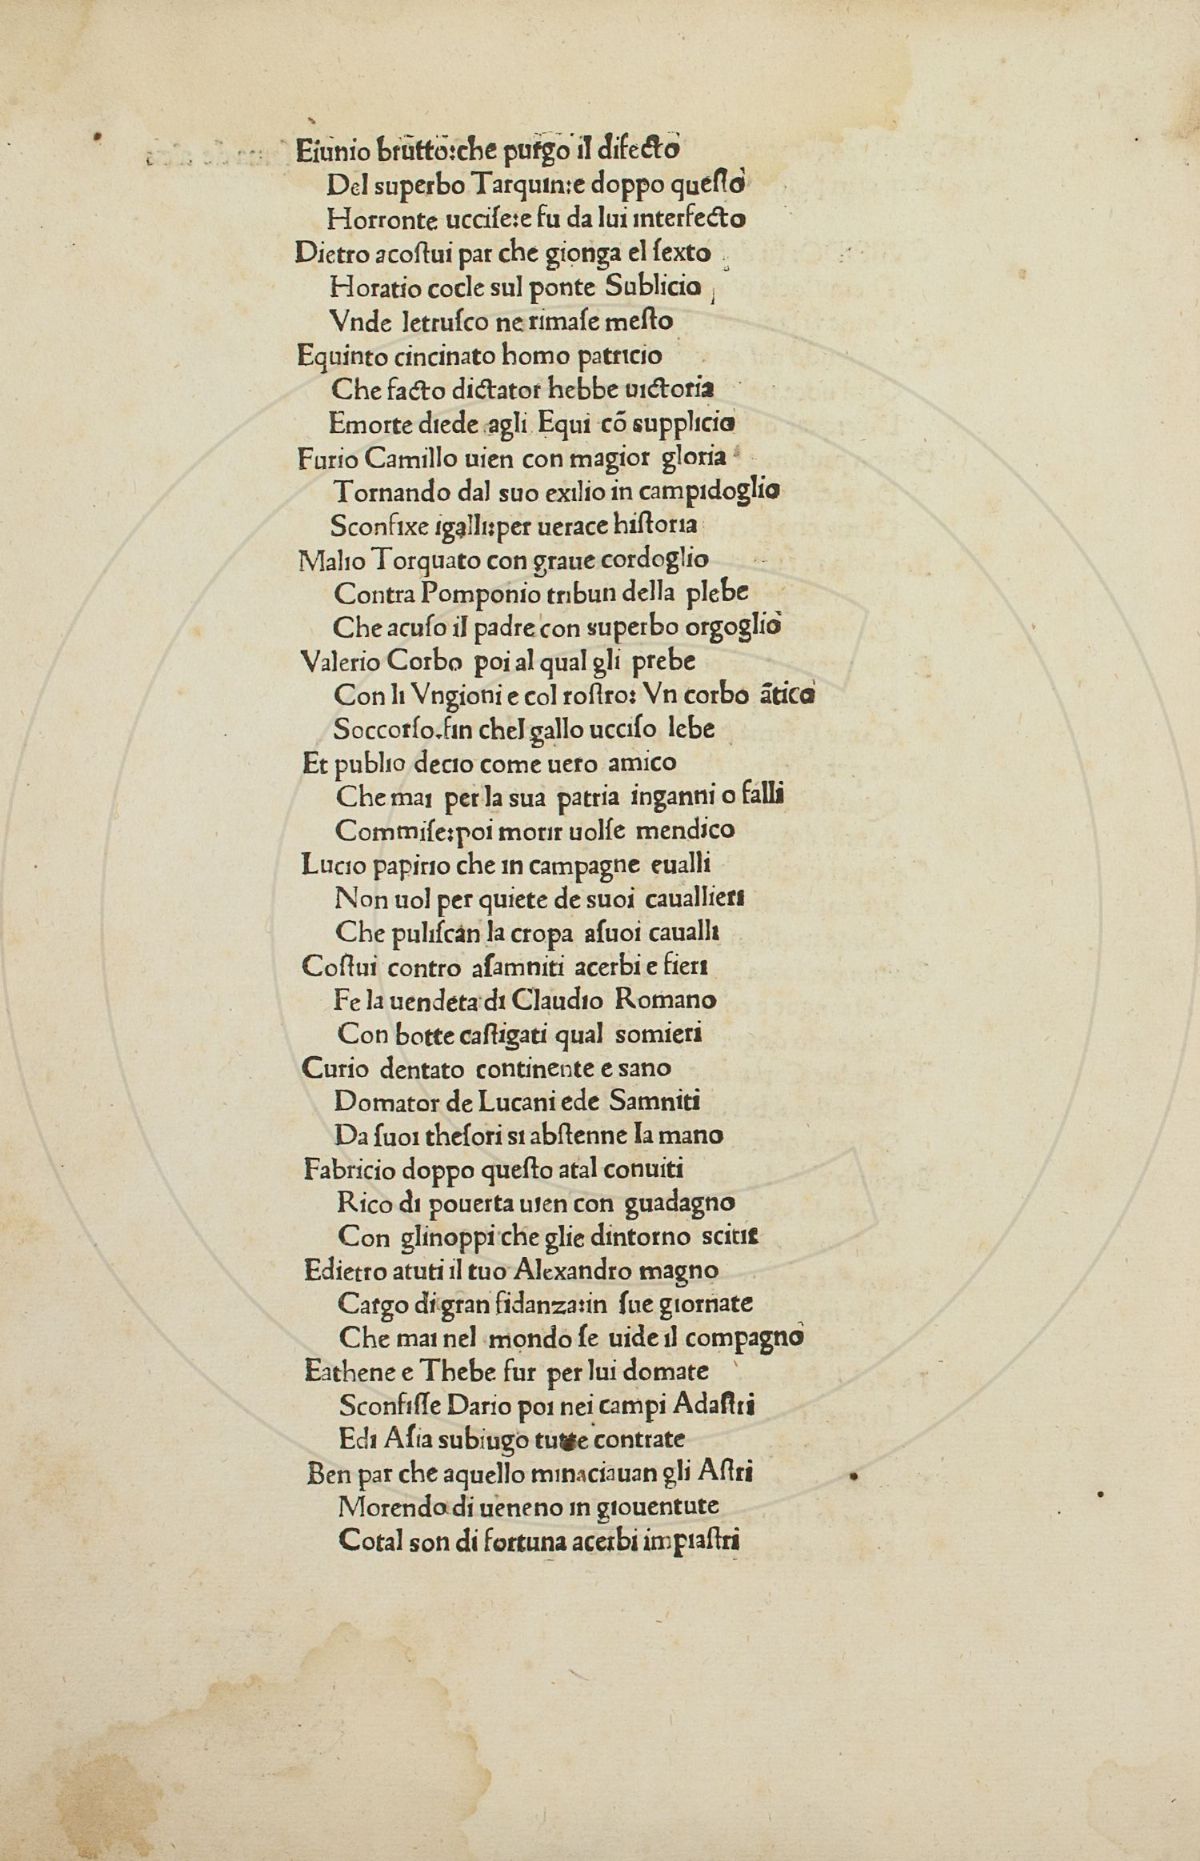 Eiunio brutto:che purgo il difecto
Del superbo Tarquin:e doppo queſto
Horronte ucciſe:e fu da lui interfecto
Dietro acoſtui par che gionga el ſexto
Horatio cocle sul ponte Sublicio
Vnde letruſco ne rimaſe meſto
Equinto cincinato homo patricio
Che facto dictator hebbe uictoria
Emorte diede agli Equi cõ supplicio
Furio Camillo uien con magior gloria
Tornando dal suo exilio in campidoglio
Sconfixe igalli:per uerace hiſtoria
Malio Torquato con graue cordoglio
Contra Pomponio tribun della plebe
Che acuſo il padre con superbo orgoglio
Valerio Corbo poi al qual gli prebe
Con li Vngioni e col roſtro: Vn corbo ãtico
Soccorſo.fin chel gallo ucciſo lebe
Et publio decio come uero amico
Che mai per la sua patria inganni o falli
Commiſe:poi morir uolſe mendico
Lucio papirio che in campagne eualli
Non uol per quiete de suoi cauallieri
Che puliſcan la cropa aſuoi caualli
Coſtui contro aſamniti acerbi e fieri
Fe la uendeta di Claudio Romano
Con botte caſtigati qual somieri
Curio dentato continente e sano
Domator de Lucani ede Samniti
Da ſuoi theſori si abſtenne la mano
Fabricio doppo queſto atal conuiti
Rico di pouerta uien con guadagno
Con glinoppi che glie dintorno sciti
Edietro atuti il tuo Alexandro magno
Cargo di gran fidanza:in ſue giornate
Che mai nel mondo ſe uide il compagno
Eathene e Thebe fur per lui domate
Sconfiſſe Dario poi nei campi Adaſtri
Edi Aſia subiugo tutte contrate
Ben par che aquello minaciauan gli Aſtri
Morendo di ueneno in giouentute
Cotal son di fortuna acerbi impiaſtri